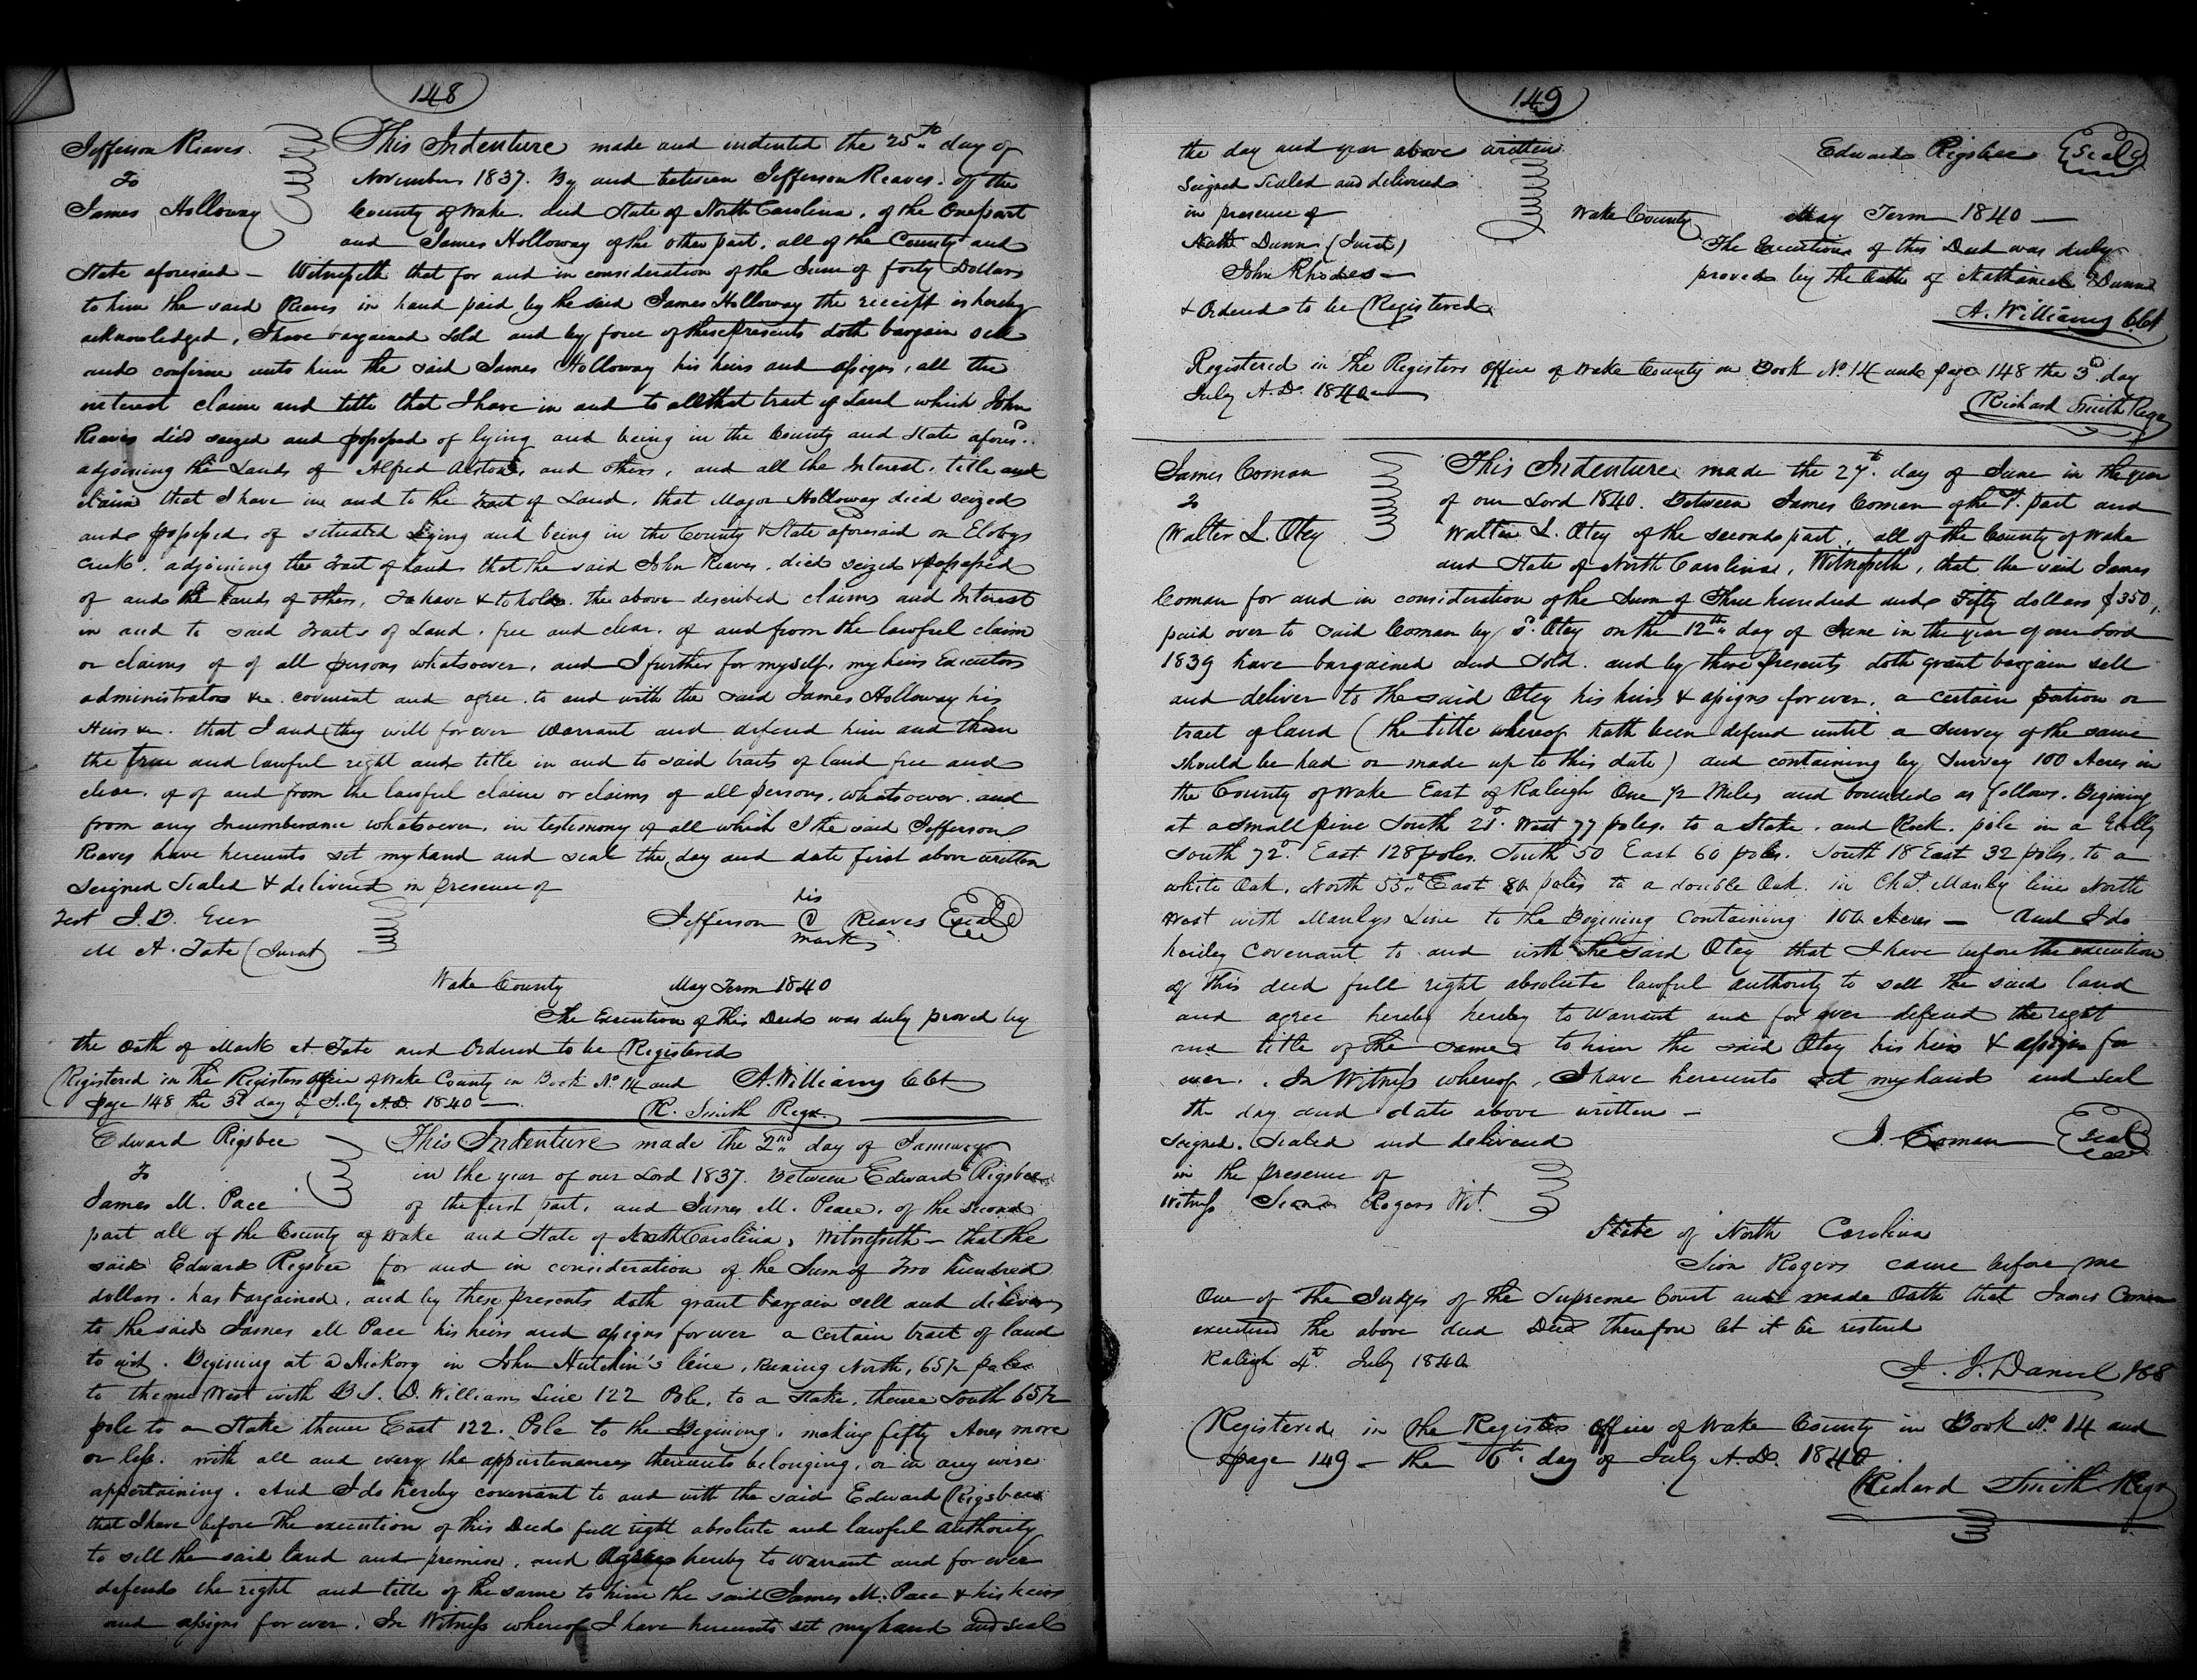 148
Jefferson Reaves
To
James Holloway
This Indenture made and indented the 25th day of
November 1837. By and between Jefferson Reaves. of the
County of Wake. and State of North Carolina. of the One part
and James Holloway of the other part. all of the County and
State aforesaid - Witnesseth that for and in consideration of the Sum of forty Dollars
to him the said Reaves in hand paid by the said James Holloway the receipt is hereby
acknowledged, I have bargained Sold and by force of these presents doth bargain sell
and confirm unto him the said James Holloway his heirs and assigns, all the
interest claim and title that I have in and to all that tract of Land which John
Reaves died seized and possessed of lying and being in the County and State afores.d
adjoining the Lands of Alfred Alston, and others, and all the Interest. title and
claim that I have in and to the Tract of Land. that Major Holloway died seized
and possessed of situated Lying and being in the County & State aforesaid on Elobys
Creek. adjoining the Tract of land that the said John Reaves. died seized & possessed
of and the Lands of others, To have & to hold. the above described claims and Interest
in and to said Tracts of Land. free and clear. of and from the lawful claim
or claims of of all persons whatsoever. and I further for myself. my heirs Executors
administrators &c. covenant and agree. to and with the said James Holloway his
Heirs &c. that I and they will for ever Warrant and defend him and them
the true and lawful right and title in and to said tracts of land free and
clear. of of and from the lawful claim or claims of all persons. whatsoever. and
from any Incumberance whatsoever. in testimony of all which I the said Jefferson
Reaves have hereunto set my hand and seal the day and date first above written
Seigned Sealed & delivered in presence of
Test J. B. Geer
M A. Tate (Jurat)
his
Jefferson @ Reaves Seal
mark
Wake County May Term 1840
The Execution of this Deed was duly proved by
the Oath of Mark A. Tate and Ordered to be Registered
A. Williams Clk
Registered in the Registers Office of Wake County in Book No. 14 and
page 148 the 3d day of July A.D. 1840 -
R. Smith Regr
Edward Rigsbee
To
James M. Pace
This Indenture made the 2nd day of January
in the year of our Lord 1837. Between Edward Rigsbee
of the first part. and James M. Peace. of the second
part all of the County of Wake and State of North Carolina, Witnesseth - that the
said Edward Rigsbee for and in consideration of the Sum of Two hundred
dollars. has bargained, and by these presents doth grant bargain sell and deliver
to the said James M Pace his heirs and assigns for ever a certain tract of land
to wit. Begining at a Hickory in John Hutchin's line, Runing North, 65½ poles
to thence West with B S. D. Williams Line 122 Pole, to a Stake, thence South 65½
pole to a Stake thence East 122. Pole to the Begining. making fifty Acres more
or less. with all and every the appurtenances thereunto belonging, or in any wise
appertaining. And I do hereby covenant to and with the said Edward Rigsbee
that I have before the execution of this Deed full right absolute and lawful authority
to sell the said land and premise, and Agree hereby to warrant and for ever
defend the right and title of the same to him the said James M. Pace & his heirs
and assigns for ever. In Witness whereof I have hereunto set my hand and seal
149
the day and year above written Edward Rigsbee Seal
Seigned Sealed and delivered
in presence of
Nath Dunn (Jurat)
John Rhodes
Wake County May Term 1840 -
The Execution of this Deed was duly
proved by the Oath of Nathaniel Dunn
& Ordered to be Registered
A. Williams Clk
Registered in the Registers Office of Wake County in Book No. 14 and page 148 the 3d day
July A.D. 1840
Richard Smith Regr
James Coman
To
Walter L. Otey
This Indenture made the 27th day of June in the year
of our Lord 1840. Between James Coman of the 1st part and
Walter L. Otey of the second part. all of the County of Wake
and State of North Carolina, Witnesseth, that the said James
Coman for and in consideration of the Sum of Three hundred and Fifty dollars $350,
paid over to said Coman by sd. Otey on the 12th day of June in the year of our Lord
1839 have bargained and Sold. and by these presents doth grant bargain sell
and deliver to the said Otey his heirs & assigns for ever. a certain portion or
tract of land (the title whereof hath been defend until a Survey of the same
should be had or made up to this date) and containing by Survey 100 Acres in
the County of Wake East of Raleigh One ½ Miles and bounded as follows. Begining
at a small pine South 21° West 77 poles. to a Stake. and Rock. pile in a Gully
South 72° East 128 poles. South 50 East 60 poles. South 18 East 32 poles. to a
white Oak, North 55° East 80 poles to a double Oak. in Chas. Manly line North
West with Manlys Line to the Begining Containing 100 Acres - And I do
hereby Covenant to and with the said Otey that I have before the execution
of this deed full right absolute lawful authority to sell the said land
and agree hereby hereby to Warrant and for ever defend the right
and title of the same to him the said Otey his heirs & assigns for
ever. In Witness whereof, I have hereunto set my hand and seal
the day and date above written -
Seigned. Sealed and delivered J. Coman Seal
in the presence of
Witness Sion Rogers Wit.
State of North Carolina
Sion Rogers came before me
One of the Judges of the Supreme Court and made Oath that James Coman
executed the above deed Deed therefore let it be restered
Raleigh 4th July 1840
J. J. Daniel
Registered in the Registers Office of Wake County in Book No. 14 and
page 149 - the 6th day of July A.D. 1840
Richard Smith Regr